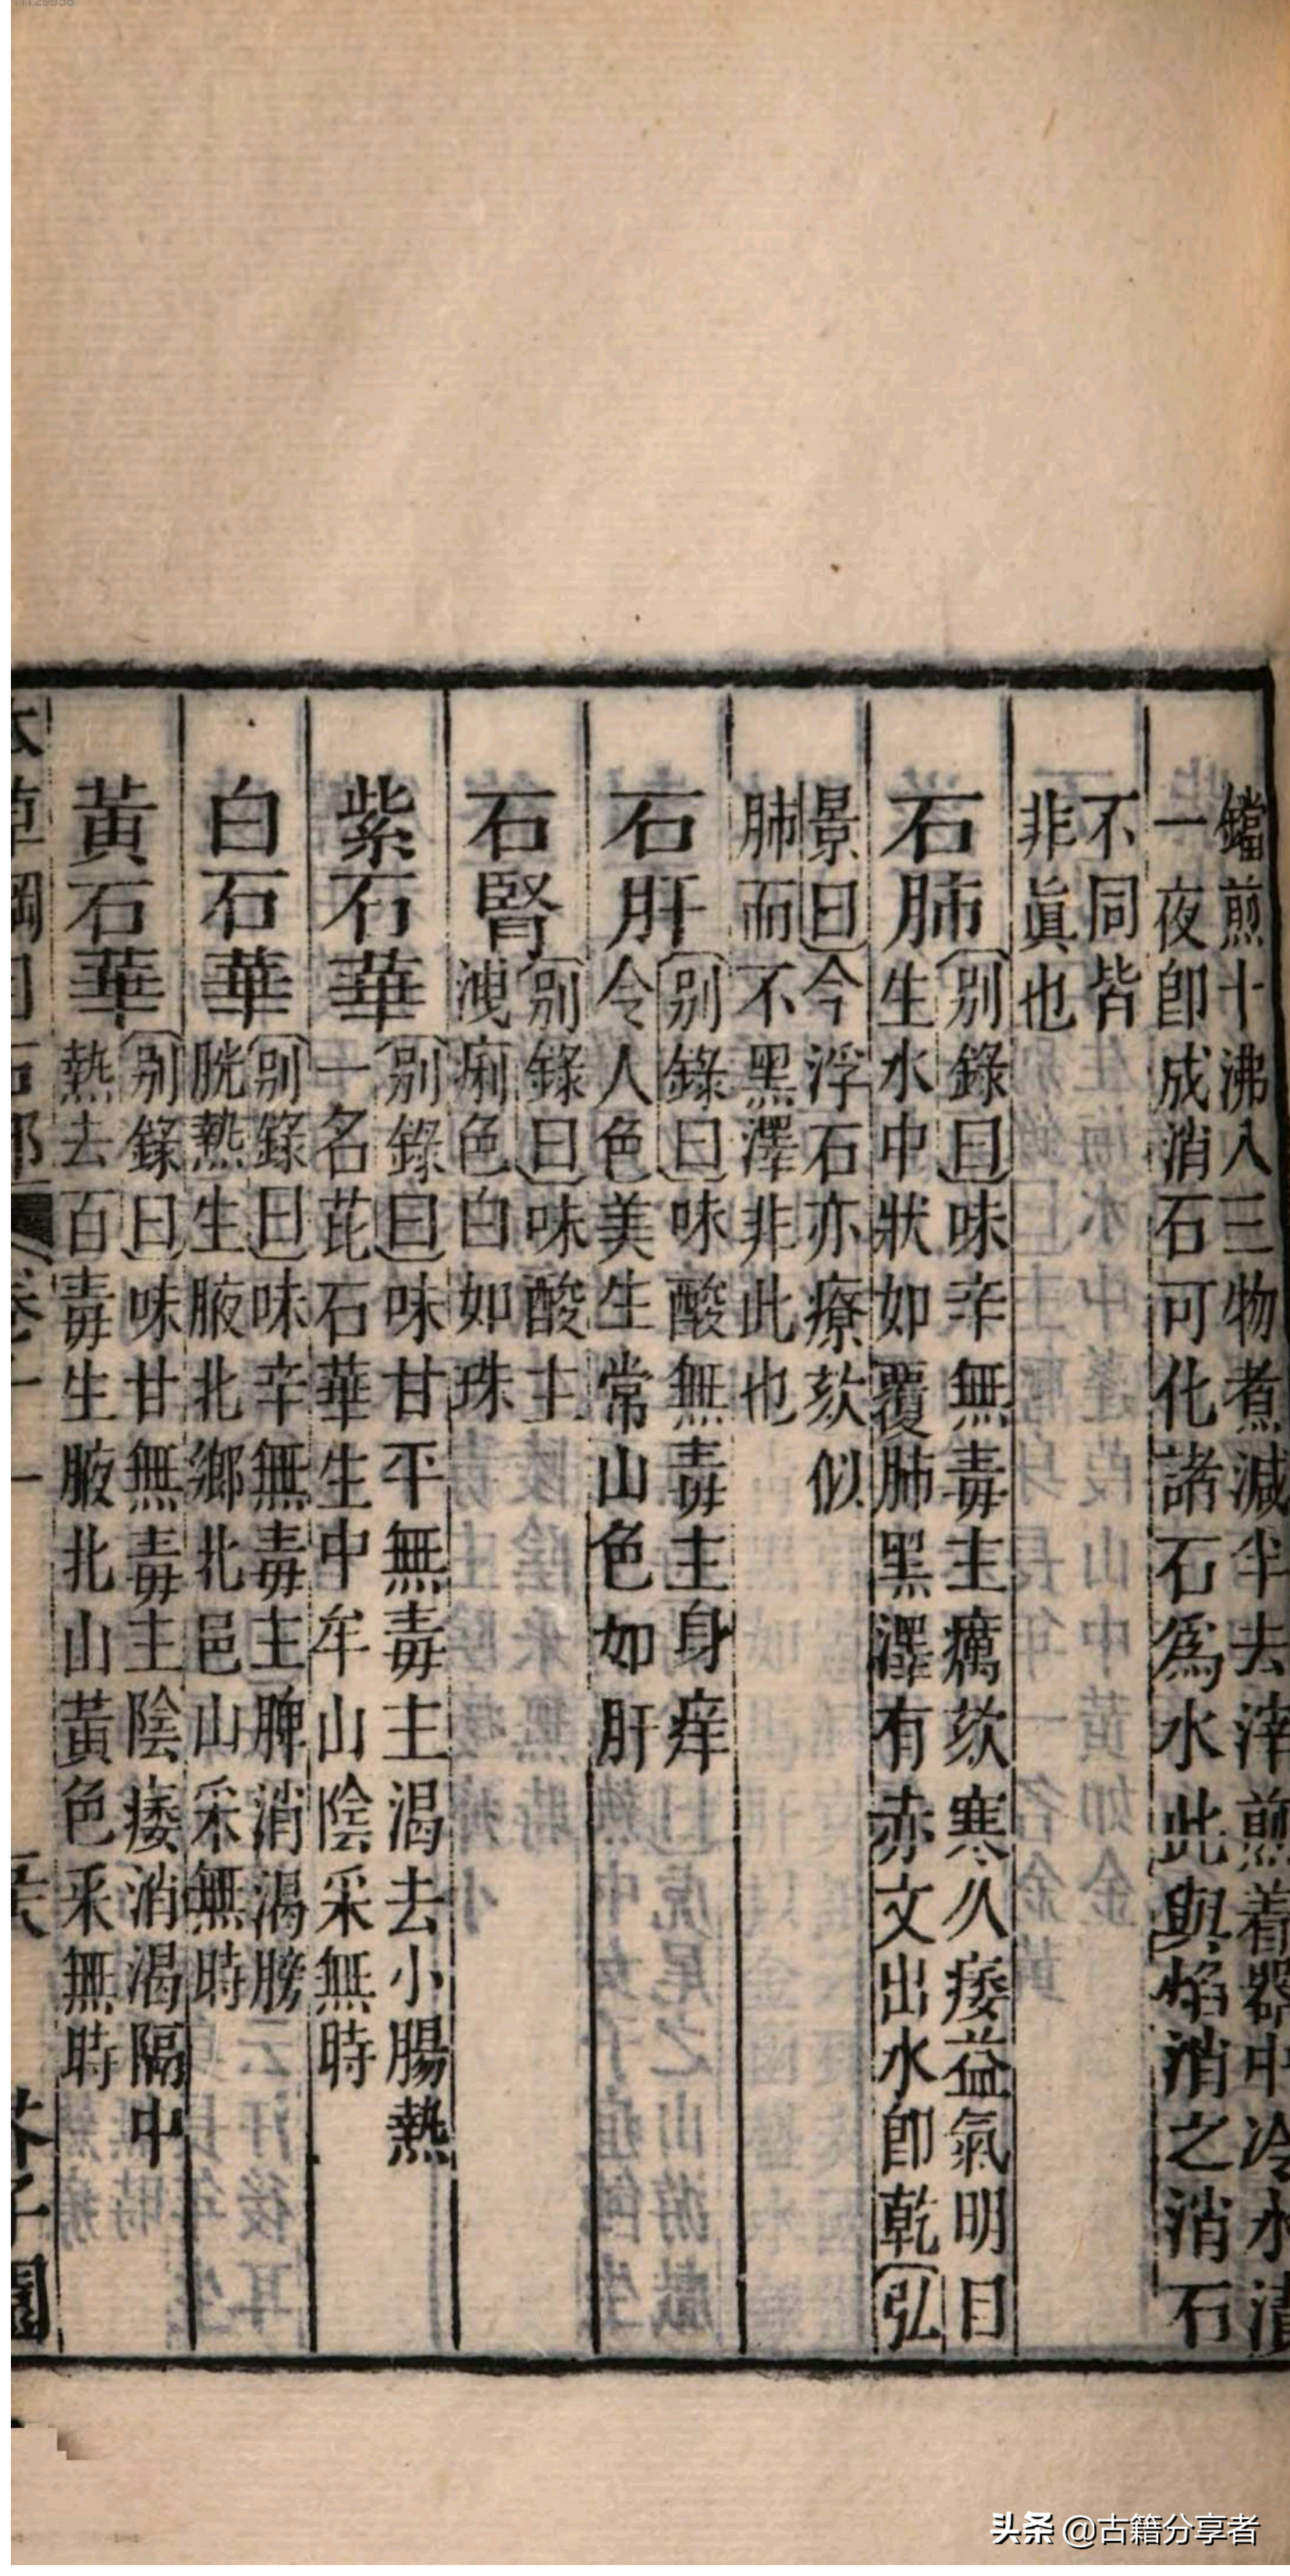 鐺煎十沸入三物煮減半去滓煎着器中冷水漬
一夜卽成消石可化諸石爲水此與焰消之消石
不同皆
非眞也
石肺
別錄曰味辛無毒主癘欬寒久痿益氣明目
生水中狀如覆肺黑澤有赤文出水卽乾弘
景曰今浮石亦療欬似
肺而不黑澤非此也
石肝
別錄曰味酸無毒主身痒
令人色美生常山色如肝
石腎
別錄曰味酸主
洩痢色白如珠
紫石華
別錄曰味甘平無毒主渴去小腸熱
一名茈石華生中牟山陰采無時
白石華
別錄曰味辛無毒主脾消渴膀
胱熱生腋北鄉北邑山采無時
黃石華
別錄曰味甘無毒主陰痿消渴隔中
熱去百毒生腋北山黃色采無時
本草綱目石部 卷十一 芥子園
头条 @古籍分享者